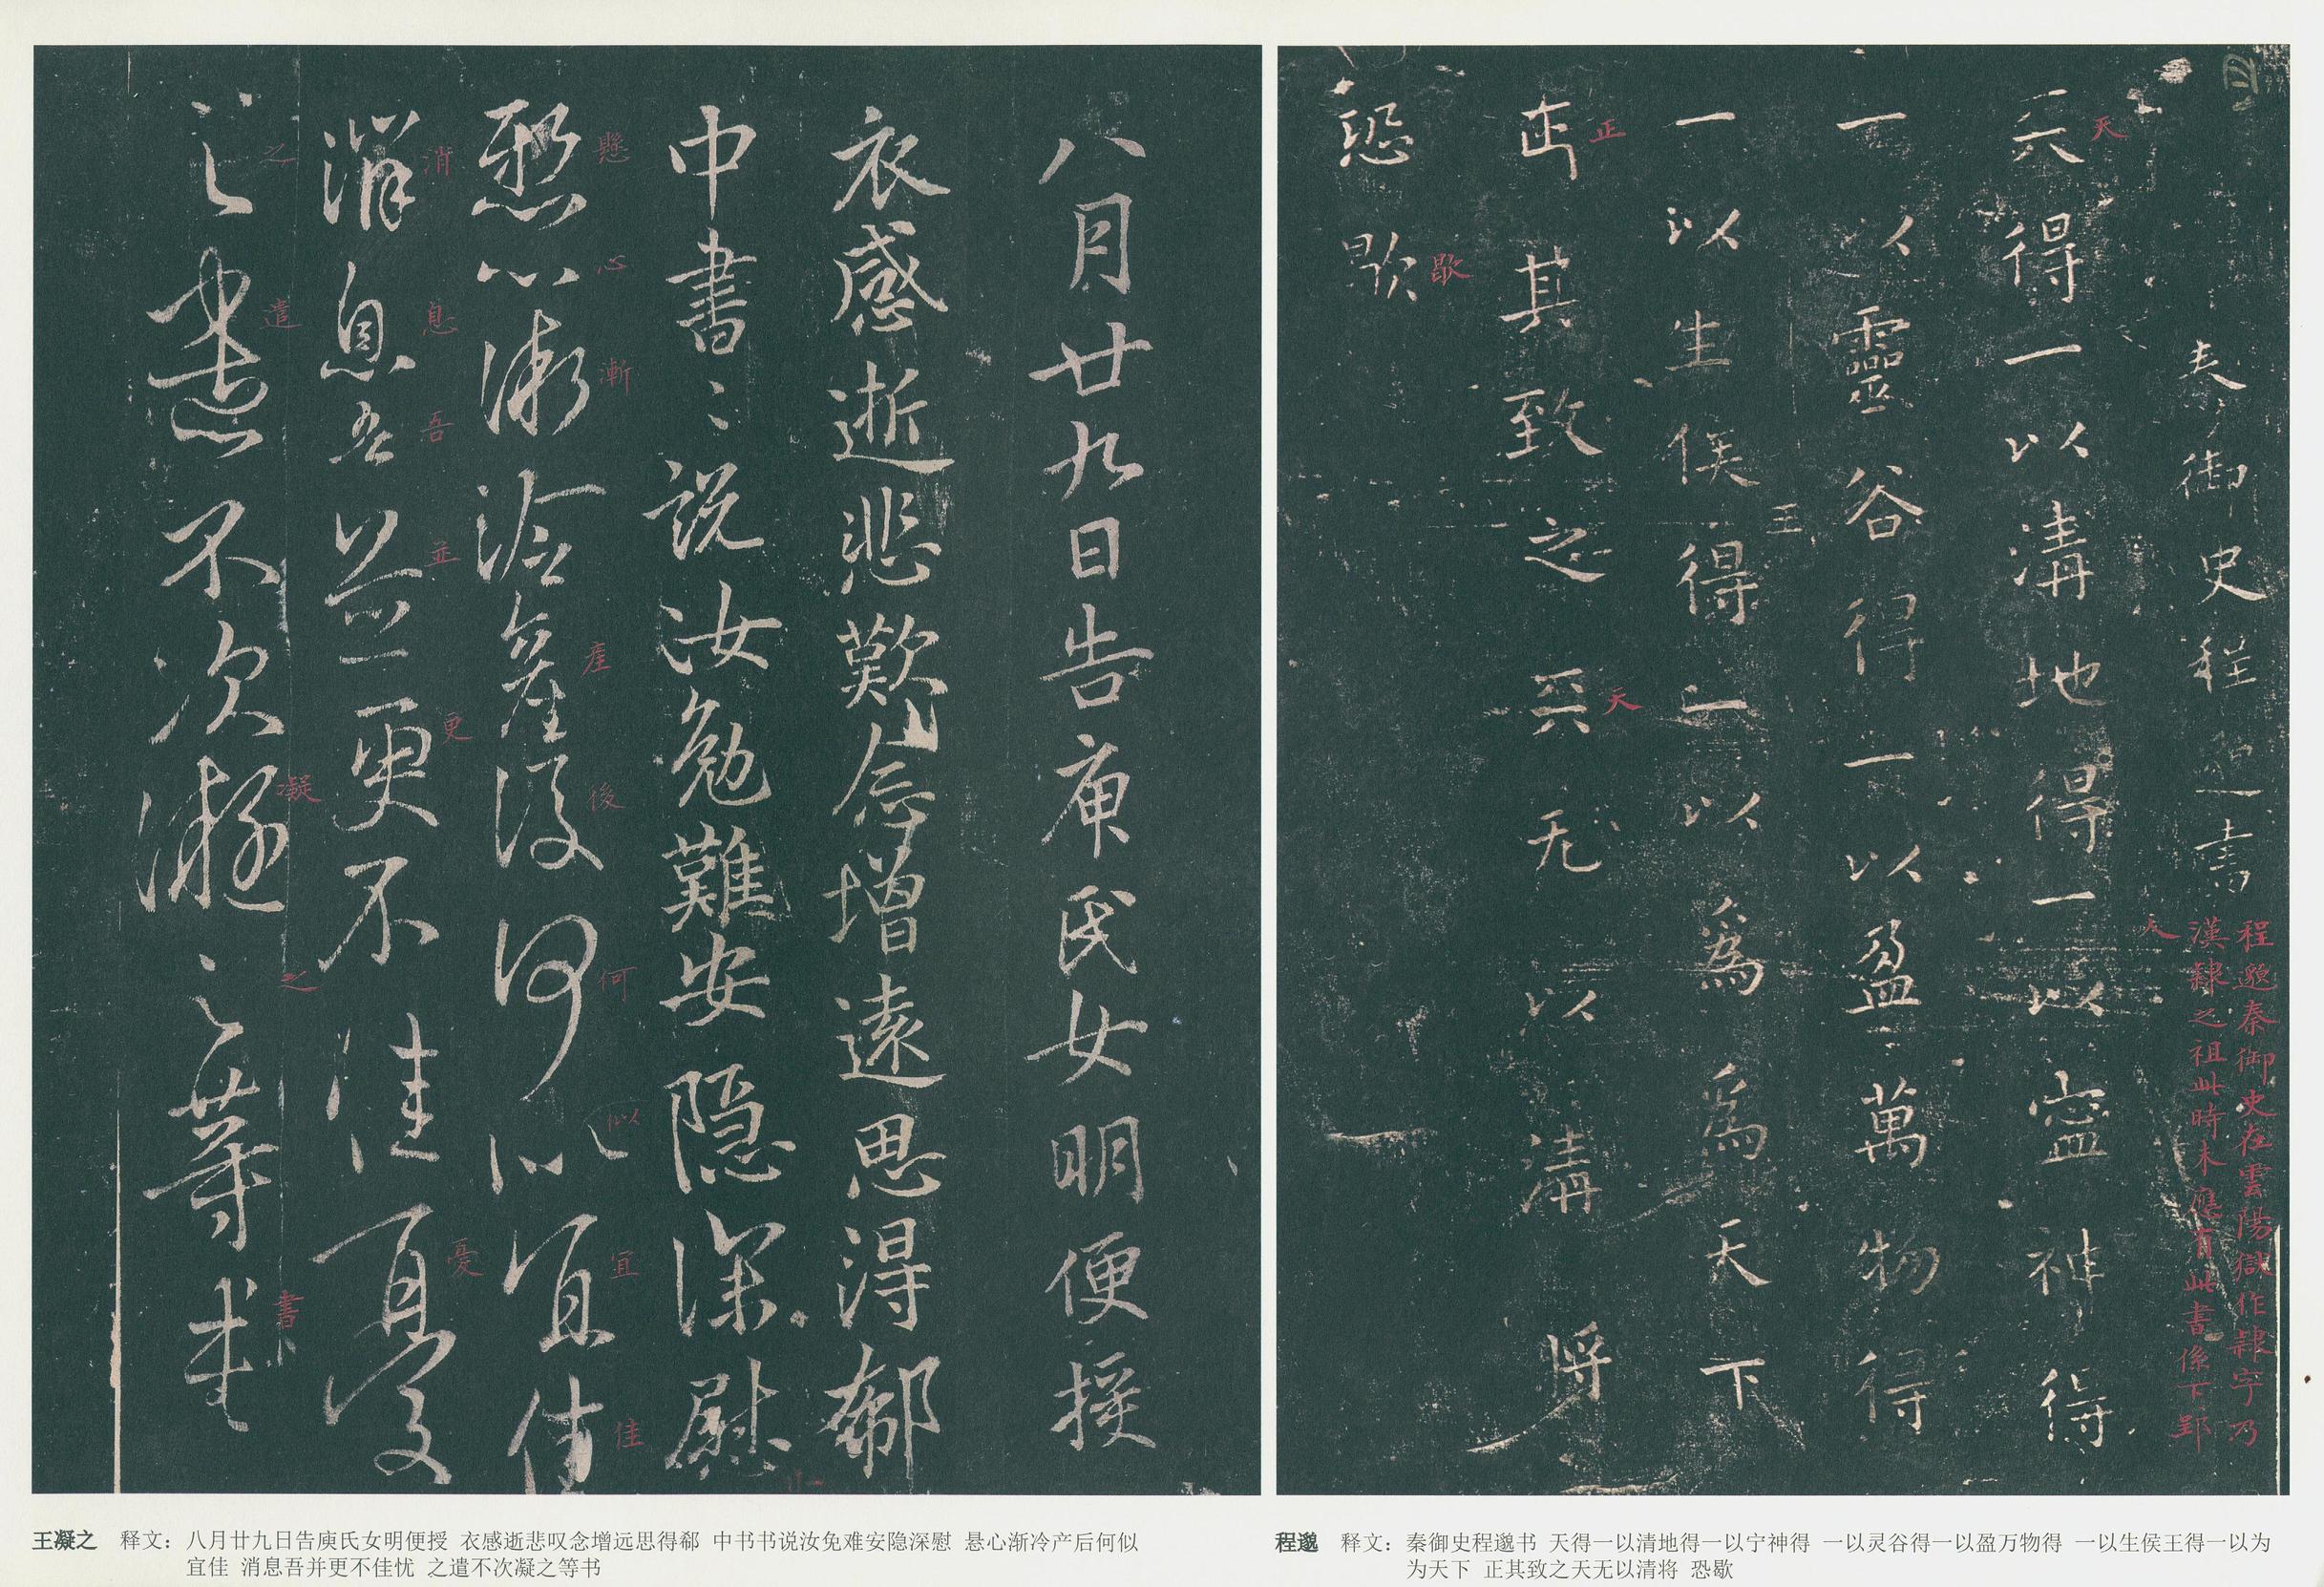 秦御史程邈書
程邈秦御史在雲陽獄作隸字乃
漢隸之祖此時未應有此書係下郢
天得一以清地得一以寍神得
天
天
一以靈谷得一以盈萬物得
一以生侯得一以為為天下
王
正其致之天无以清將
正
天
恐歇
歇
八月廿九日告庾氏女明便授
衣感逝悲歎念增遠思得郗
中書〻説汝勉難安隐深慰
懸心漸冷產後何似宜佳
懸心漸產後何似宜佳
消息吾並更不佳憂
消息吾並更憂
之遣不次凝之等書
之遣凝之書
王凝之 释文：八月廿九日告庾氏女明便授 衣感逝悲叹念增远思得郗 中书书说汝免难安隐深慰 悬心渐冷产后何似
宜佳 消息吾并更不佳忧 之遣不次凝之等书
程邈 释文：秦御史程邈书 天得一以清地得一以宁神得 一以灵谷得一以盈万物得 一以生侯王得一以为
为天下 正其致之天无以清将 恐歇